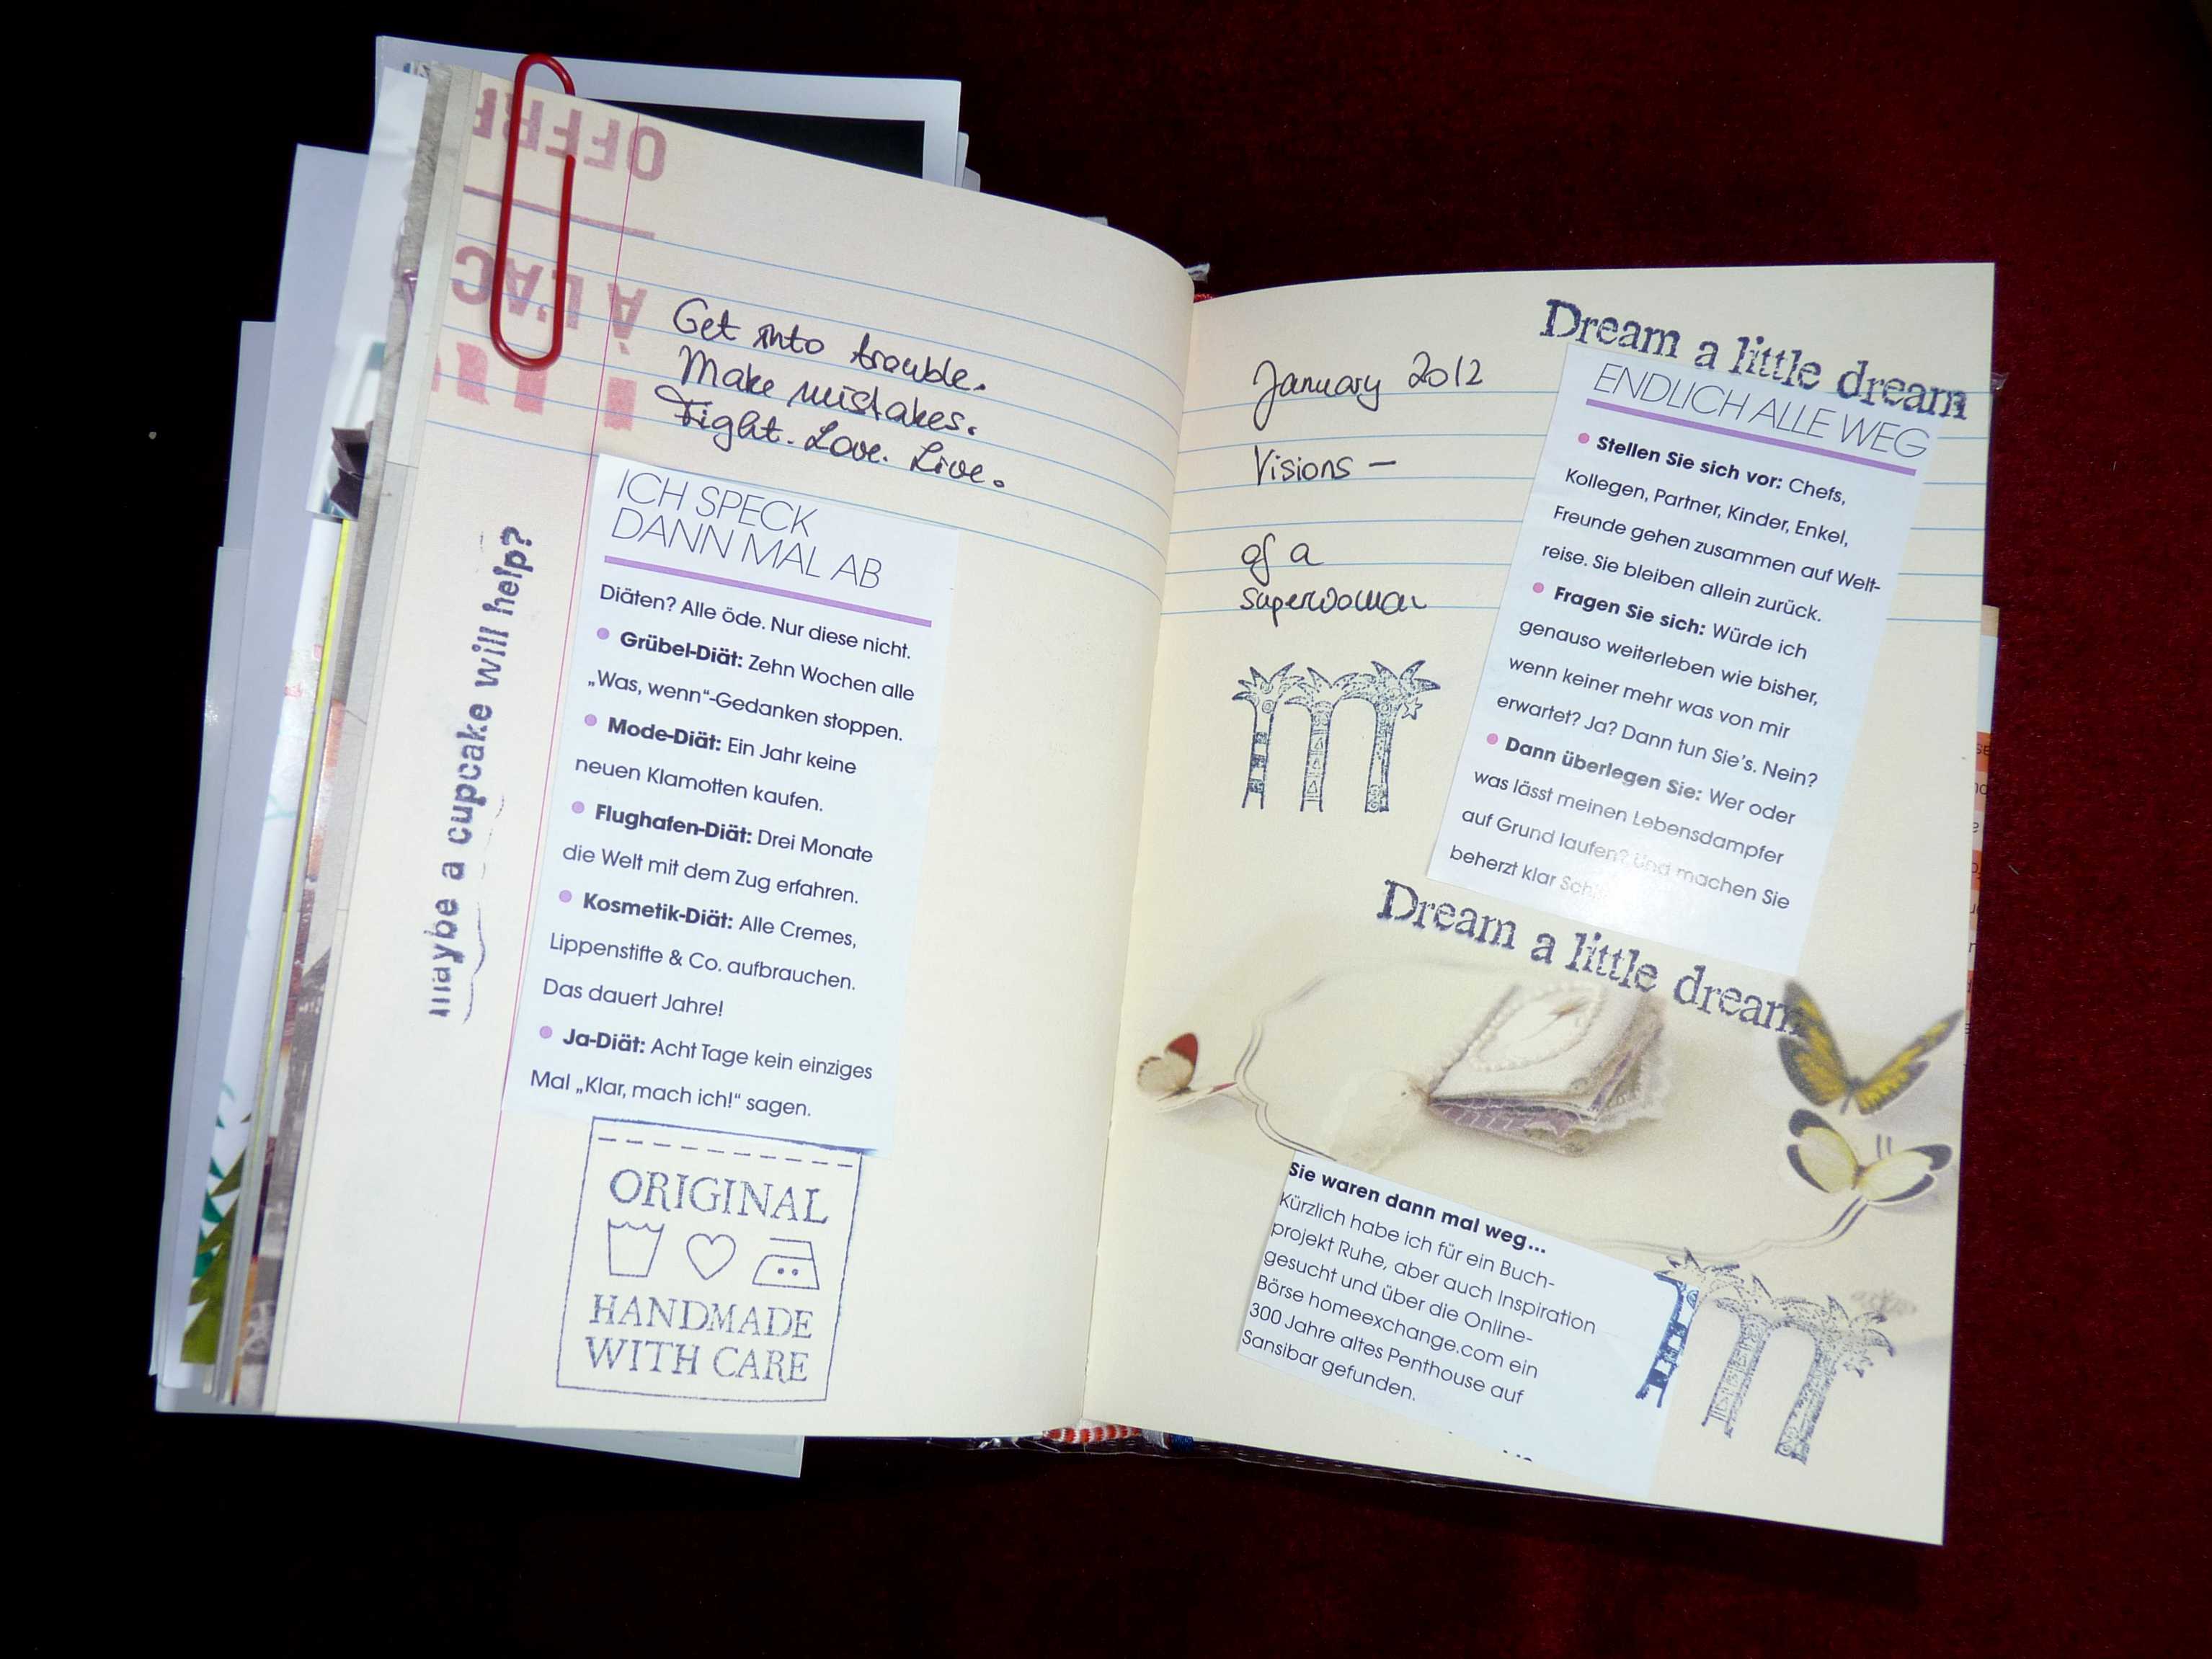 OFFR
À L'AC
Get into trouble.
Make mistakes.
Fight. Love. Live.
maybe a cupcake will help?
ICH SPECK
DANN MAL AB
Diäten? Alle öde. Nur diese nicht.
• Grübel-Diät: Zehn Wochen alle
„Was, wenn“-Gedanken stoppen.
• Mode-Diät: Ein Jahr keine
neuen Klamotten kaufen.
• Flughafen-Diät: Drei Monate
die Welt mit dem Zug erfahren.
• Kosmetik-Diät: Alle Cremes,
Lippenstifte & Co. aufbrauchen.
Das dauert Jahre!
• Ja-Diät: Acht Tage kein einziges
Mal „Klar, mach ich!“ sagen.
ORIGINAL
HANDMADE
WITH CARE
January 2012
Visions –
of a
superwoman
Dream a little dream
ENDLICH ALLE WEG
• Stellen Sie sich vor: Chefs,
Kollegen, Partner, Kinder, Enkel,
Freunde gehen zusammen auf Welt-
reise. Sie bleiben allein zurück.
• Fragen Sie sich: Würde ich
genauso weiterleben wie bisher,
wenn keiner mehr was von mir
erwartet? Ja? Dann tun Sie's. Nein?
• Dann überlegen Sie: Wer oder
was lässt meinen Lebensdampfer
auf Grund laufen? Und machen Sie
beherzt klar
Dream a little dream
Sie waren dann mal weg...
Kürzlich habe ich für ein Buch-
projekt Ruhe, aber auch Inspiration
gesucht und über die Online-
Börse homeexchange.com ein
300 Jahre altes Penthouse auf
Sansibar gefunden.